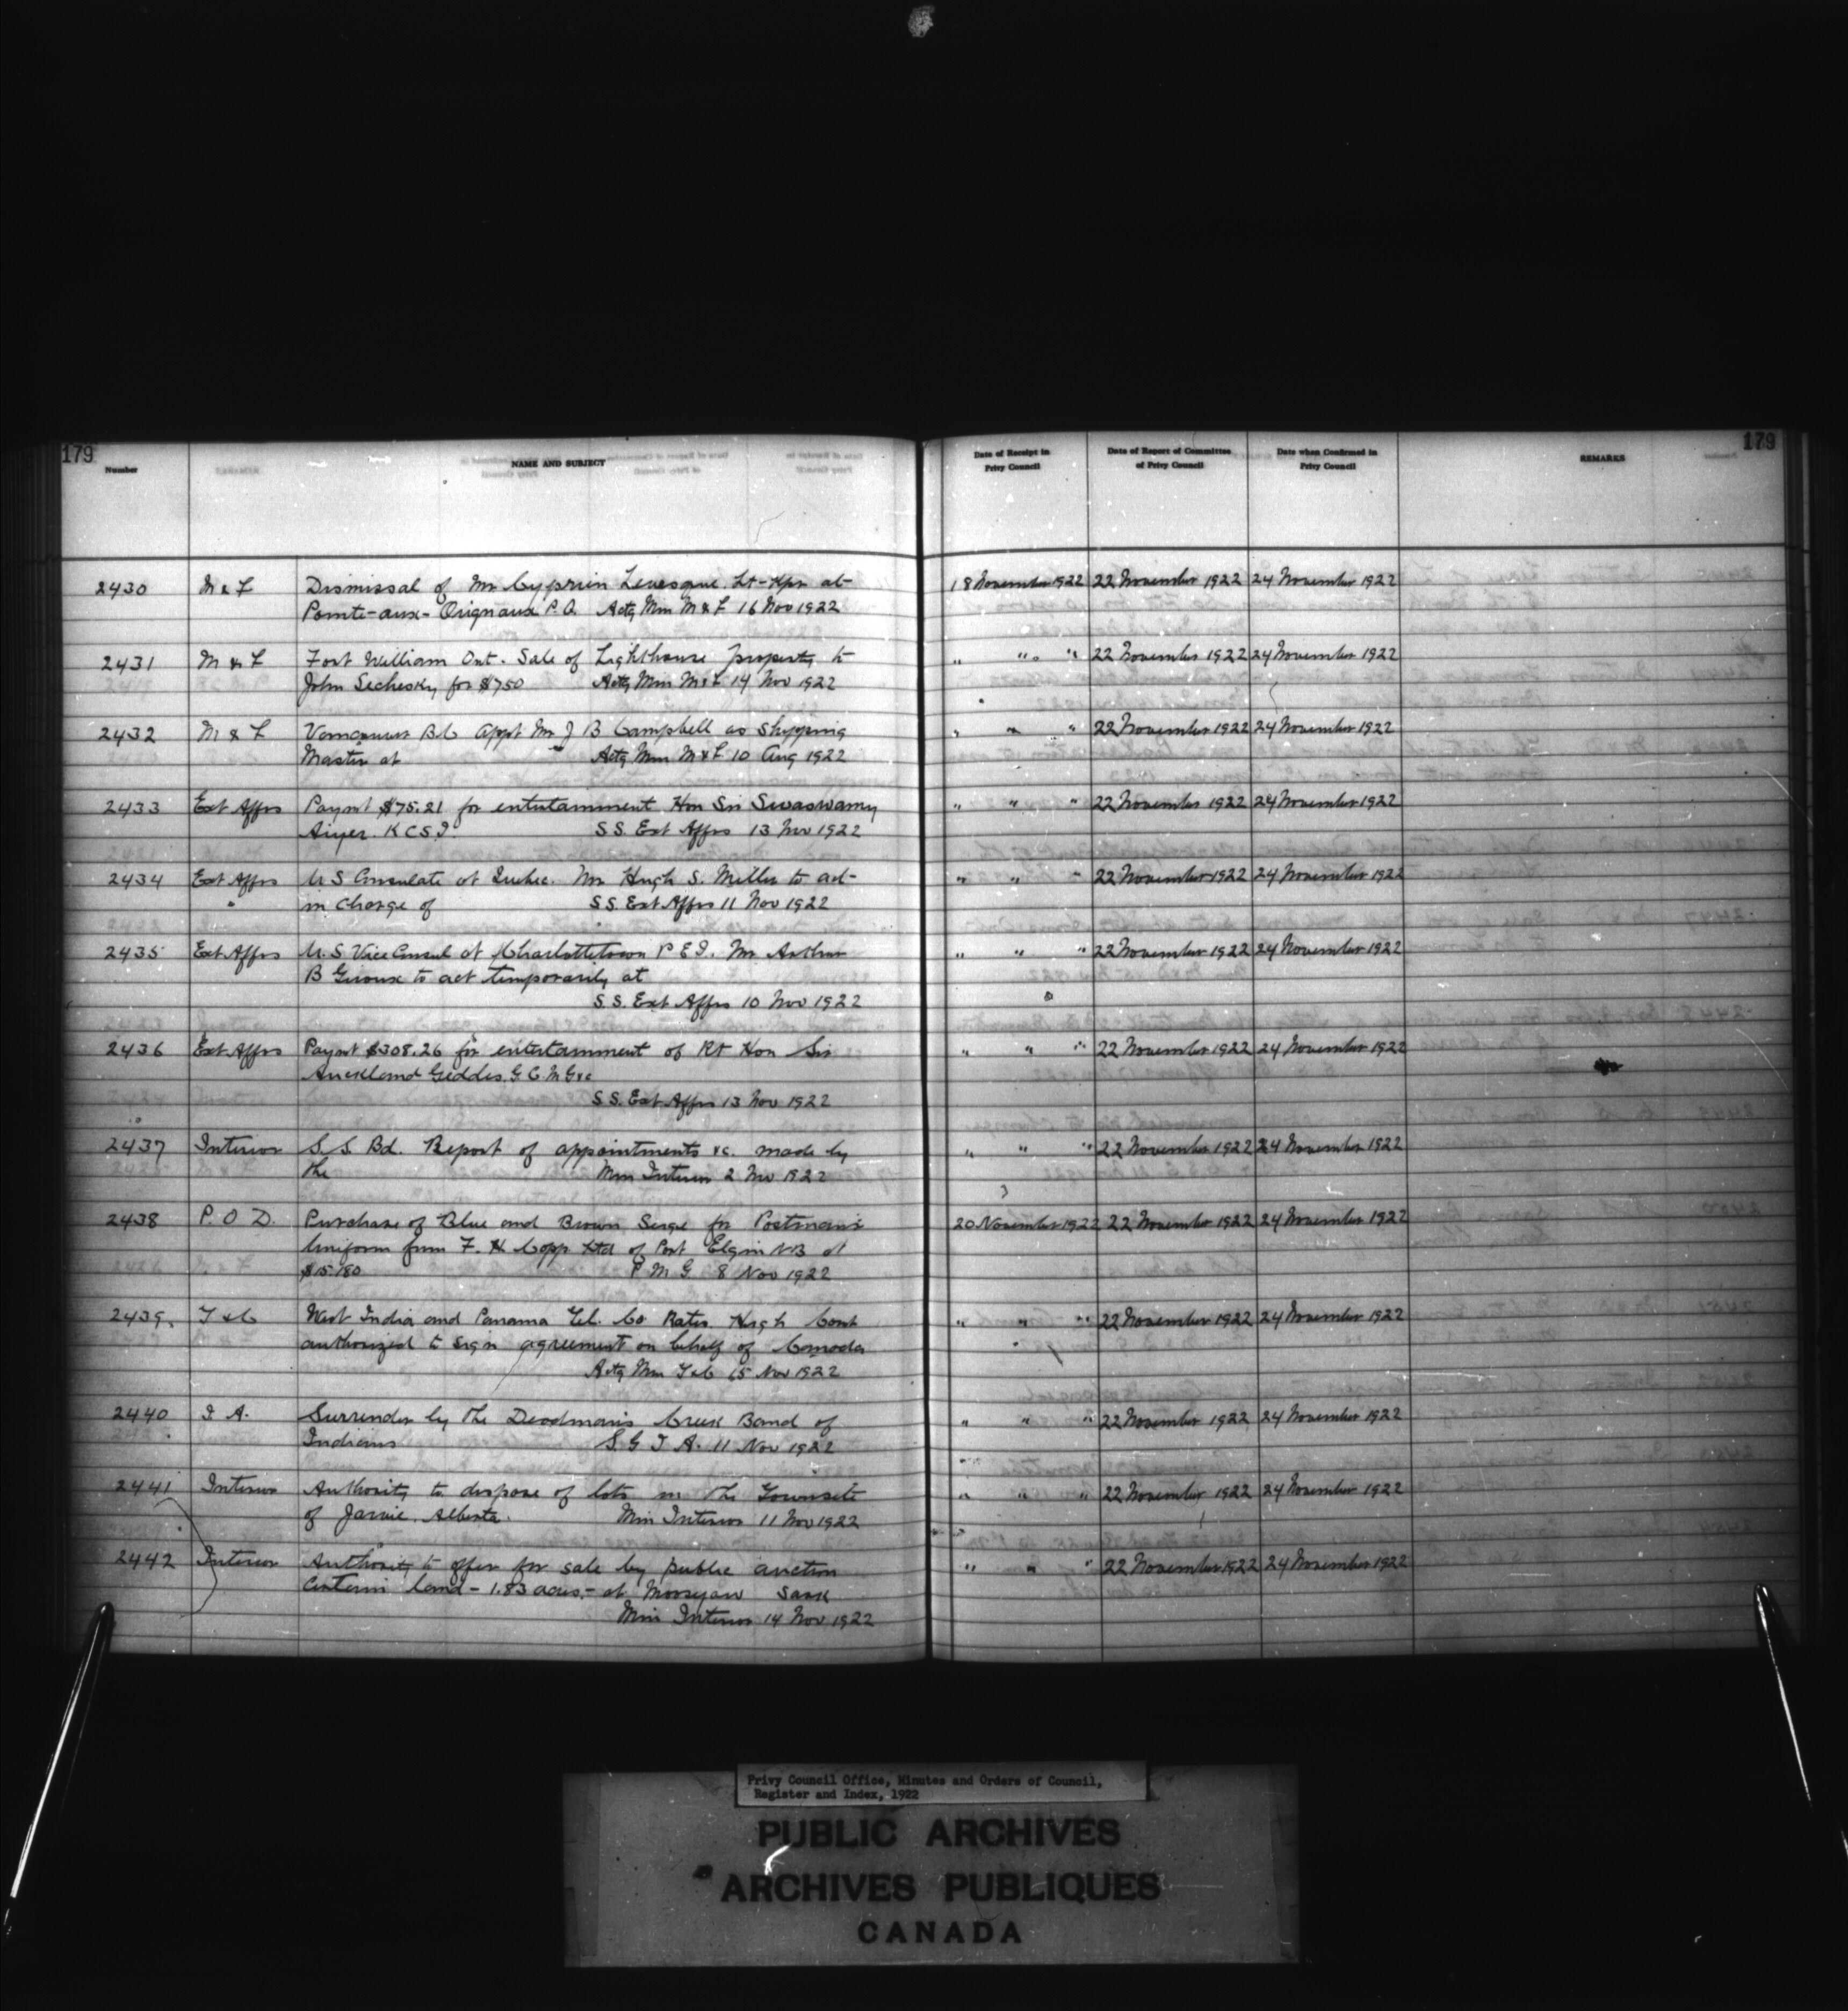 179
179
Number
NAME AND SUBJECT
Date of Receipt in Privy Council
Date of Report of Committee of Privy Council
Date when Confirmed in Privy Council
REMARKS
2430 M & F Dismissal of Mr Cyprien Levesque Lt-Kpr at 18 November 1922 22 November 1922 24 November 1922
Pointe-aux-Orignaux P.Q. Actg Min M & F 16 Nov 1922
2431 M & F Fort William Ont. Sale of Lighthouse property to " " " 22 November 1922 24 November 1922
John Sechesky for $750 Actg Min M & F 14 Nov 1922
2432 M & F Vancouver B C Appt Mr J B Campbell as Shipping " " " 22 November 1922 24 November 1922
Master at Actg Min M & F 10 Aug 1922
2433 Ext Affrs Paymt $75.21 for entertainment Hon Sir Sivaswamy " " " 22 November 1922 24 November 1922
Aiyer. K C S I. S.S. Ext Affrs 13 Nov 1922
2434 Ext Affrs U S Consulate at Quebec. Mr Hugh S. Miller to act " " " 22 November 1922 24 November 1922
" in charge of S S. Ext Affrs 11 Nov 1922
2435 Ext Affrs U. S Vice Consul at Charlottetown P E I. Mr Arthur " " " 22 November 1922 24 November 1922
B Giroux to act temporarily at
S. S. Ext Affrs 10 Nov 1922
2436 Ext Affrs Paymt $308.26 for entertainment of Rt Hon Sir " " " 22 November 1922 24 November 1922
Auckland Geddes. G C. M G &c
S S. Ext Affrs 13 Nov 1922
2437 Interior S. S. Bd. Report of appointments &c. made by " " " 22 November 1922 24 November 1922
the Min Interior 2 Nov 1922
2438 P. O D. Purchase of Blue and Brown Serge for Postman's 20 November 1922 22 November 1922 24 November 1922
Uniform from F. H. Copp Ltd of Port Elgin N B at
P M G 8 Nov 1922
2439. T & C West India and Panama Tel. Co Rates. High Comt " " " 22 November 1922 24 November 1922
authorized to sign agreement on behalf of Canada
Actg Min T & C 15 Nov 1922
2440 I A. Surrender by the Deadman's Creek Band of " " " 22 November 1922 24 November 1922
Indians S. G I A. 11 Nov 1922
2441 Interior Authority to dispose of lots in the Townsite " " " 22 November 1922 24 November 1922
of Jarvie. Alberta. Min Interior 11 Nov 1922
2442 Interior Authority to offer for sale by public auction " " " 22 November 1922 24 November 1922
certain land - 1.83 acres - at Moosejaw Sask
Min Interior 14 Nov 1922
Privy Council Office, Minutes and Orders of Council,
Register and Index, 1922
PUBLIC ARCHIVES
ARCHIVES PUBLIQUES
CANADA